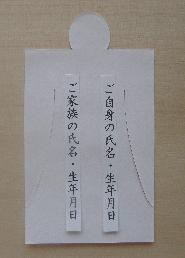 ご自身の氏名・生年月日
ご家族の氏名・生年月日